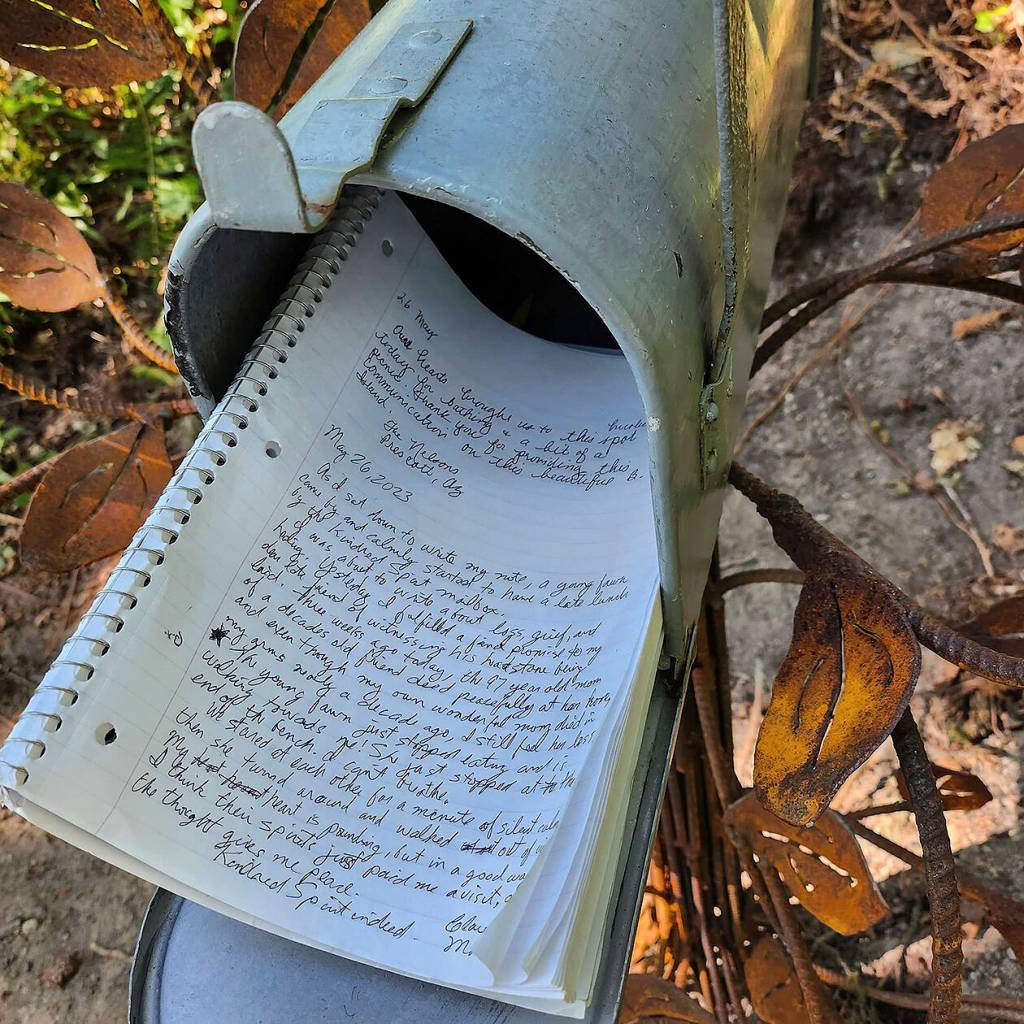 26 May
Our hearts brought us to this spot
today for bathing & a bit of a
picnic. Thank you for providing this
communication on this beautiful
Island.
The Nelsons
Prescott, Az
May 26, 2023
As I sat down to write my note, a young fawn
came by and calmly started to have a late lunch
by the Kindred Spirit mailbox.
I was about to write about loss, grief, and
Yesterday I fulfilled a final promise to my
dear late friend of witnessing his headstone being
laid. Three weeks ago today, the 97 year old mom
of a decades old friend died peacefully at her home
and even though my own wonderful mom died in
my arms nearly a decade ago, I still feel her loss
The young fawn just stopped eating and is
walking towards me! She just stopped at the
end of the bench. I can't breathe.
We stared at each other for a minute of silent
then she turned around and walked out of
My heart is pounding, but in a good
I think their spirits just paid me a visit,
the thought gives me peace.
Kindred Spirit indeed
M.